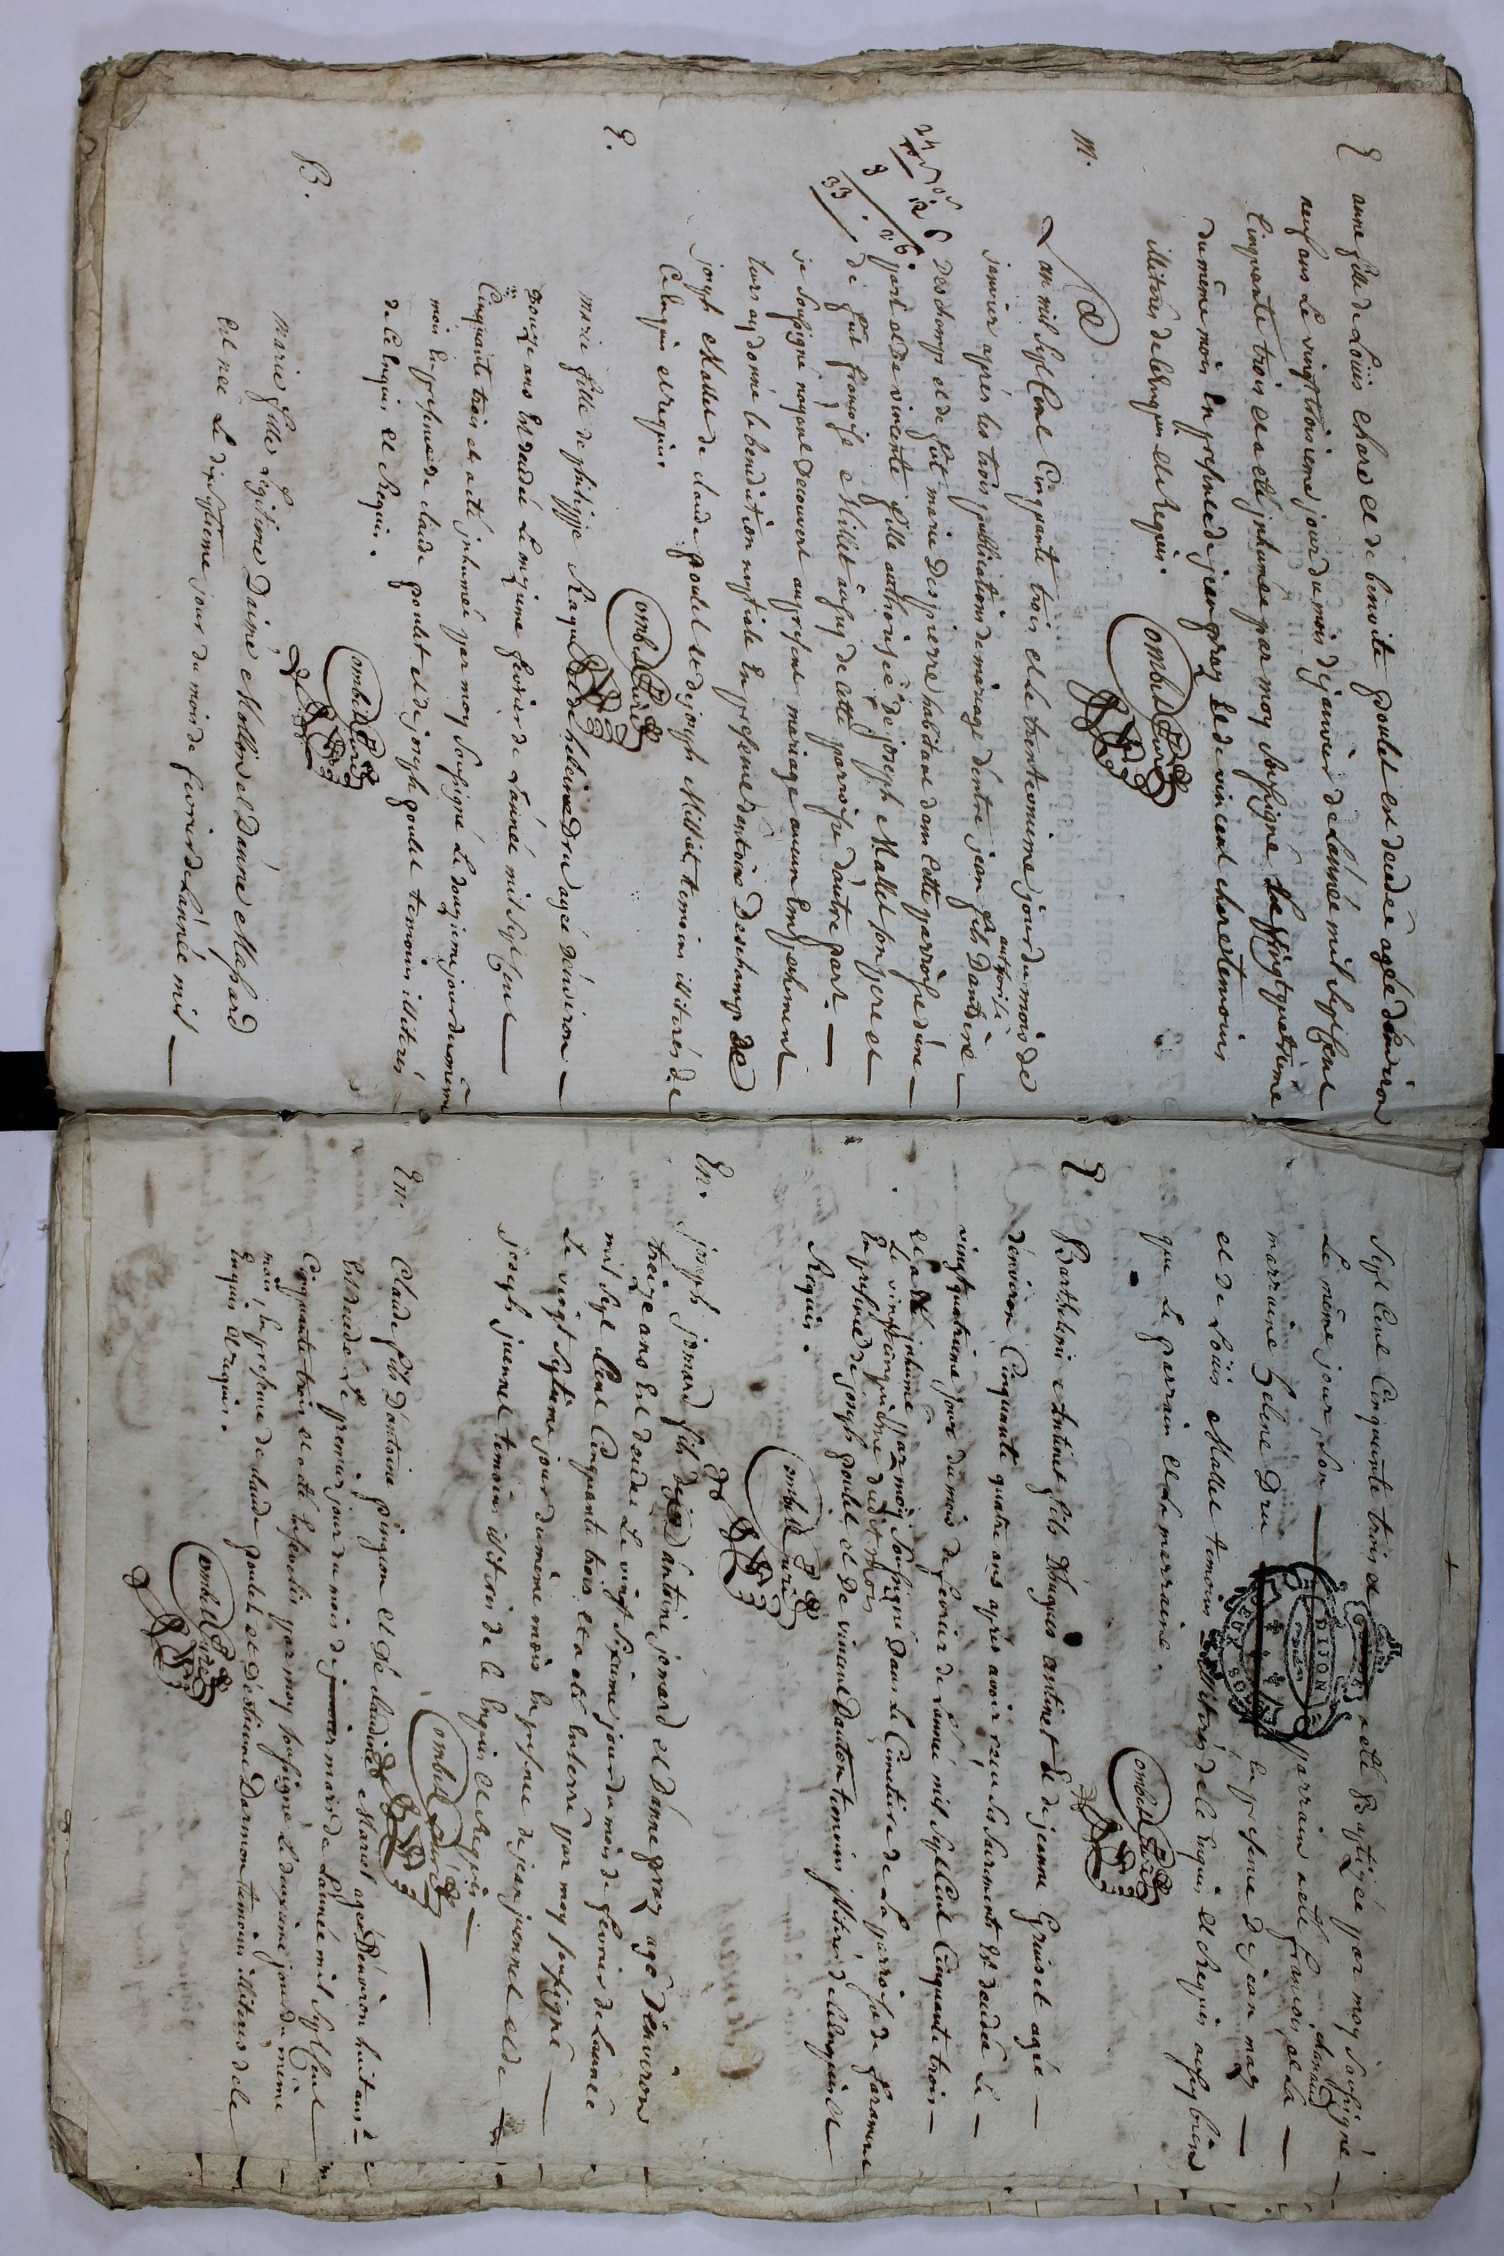 E
anne fille de Louis chare et de benoite poulet est decedée agée d'environ
neuf ans le vingt troisieme jour du mois de janvier de l'année mil sept cent
cinquante trois et a eté inhumée par moy soussigné le vingt quatrieme
du même mois en presence de jean gray et de vincent chare temoins
illiterés de ce enquis et requis.
Combet Curé
M.
L'an mil sept cent cinquante trois et le trente unieme jour du mois de
janvier aprés les trois publications de mariage d'entre jean fils d'antoine
authorisé
Deschamps et de fût marie Despierre habitant dans cette parroisse d'une
part et de vincente fille authorisée de joseph Mallet son pere et
de fût françoise Millet aussy de cette parroisse d'autre part
je soussigné n'ayant decouvert au present mariage aucun empechement
leurs ay donné la benediction nuptiale en presence d'antoine Deschamp de
joseph Mallet de claude poulet et de joseph Millet temoins illiterés de
ce enquis et requis
Combet Curé
33
E.
marie fille de philippe Raquet et de heleine Dru agée d'environ
douze ans est decedée le onzieme fevrier de l'année mil sept cent
cinquante trois et a eté inhumée par moy soussigné le douzieme jour du même
mois en presence de claude poulet et de joseph poulet temoins illiterés
de ce enquis et requis.
Combet Curé
B.
Marie fille legitime
est née le dix septieme jour du mois de fevrier de l'année mil
sept cent cinquante trois et a eté Baptizée par moy soussigné
Le même jour, son parrain a eté françois et la
chanaud
marraine heleine Dru en presence de jean
et de Louis Mallet temoins illiterés de ce enquis et requis aussy bien
que le parrain et la marraine.
Combet Curé
E
Barthelemi Antinet fils d'hugues antinet et de jeanne Gruiset agée
d'environ cinquante quatre ans apres avoir reçu les sacrements est decedée le
vingt quatrieme jour du mois de fevrier de l'année mil sept cent cinquante trois
et a eté inhumé par moy soussigné dans le cimetiere de la parroisse de
le vingt cinquieme dudit mois
en presence de joseph poulet et de vincent Danton temoins illiterés de ce enquis et
Requis.
Combet Curé
En.
joseph jomard fils de antoine jomard et d'anne gray agé d'environ
treize ans est decedé le vingt sixieme jour du mois de fevrier de l'année
mil sept cent cinquante trois et a eté enterré par moy soussigné
le vingt septieme jour du même mois en presence de jean juennet et de
joseph juennet temoins illiterés de ce enquis et requis
Combet Curé
En.
Claude fils d'antoine pingeon et de claudine agé d'environ huit ans
est decedé le premier jour du mois de janvier mars de l'année mil sept cent
cinquante trois et a eté enseveli par moy soussigné le deuxieme jour du même
mois, en presence de claude poulet et d'estienne Darmon temoins illiterés de ce
enquis et requis.
Combet Curé
DIJON